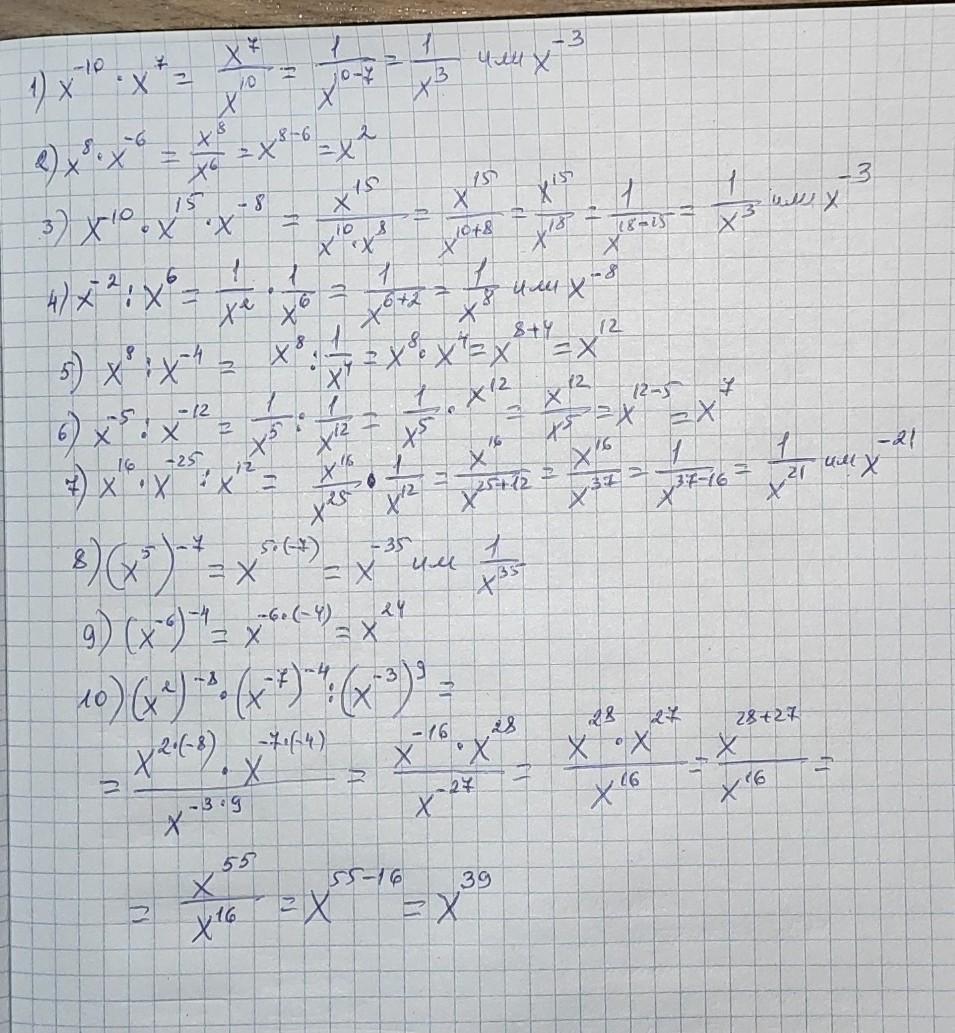 1) x^{-10} · x^7 = \frac{x^7}{x^{10}} = \frac{1}{x^{10-7}} = \frac{1}{x^3} или x^{-3}
2) x^8 · x^{-6} = \frac{x^8}{x^6} = x^{8-6} = x^2
3) x^{-10} · x^{15} · x^{-8} = \frac{x^{15}}{x^{10} · x^8} = \frac{x^{15}}{x^{10+8}} = \frac{x^{15}}{x^{18}} = \frac{1}{x^{18-15}} = \frac{1}{x^3} или x^{-3}
4) x^{-2} : x^6 = \frac{1}{x^2} · \frac{1}{x^6} = \frac{1}{x^{6+2}} = \frac{1}{x^8} или x^{-8}
5) x^8 : x^{-4} = x^8 : \frac{1}{x^4} = x^8 · x^4 = x^{8+4} = x^{12}
6) x^{-5} : x^{-12} = \frac{1}{x^5} : \frac{1}{x^{12}} = \frac{1}{x^5} · x^{12} = \frac{x^{12}}{x^5} = x^{12-5} = x^7
7) x^{16} · x^{-25} : x^{12} = \frac{x^{16}}{x^{25}} · \frac{1}{x^{12}} = \frac{x^{16}}{x^{25+12}} = \frac{x^{16}}{x^{37}} = \frac{1}{x^{37-16}} = \frac{1}{x^{21}} или x^{-21}
8) (x^5)^{-7} = x^{5·(-7)} = x^{-35} или \frac{1}{x^{35}}
9) (x^{-6})^{-4} = x^{-6·(-4)} = x^{24}
10) (x^2)^{-8} · (x^{-7})^{-4} : (x^{-3})^9 =
= \frac{x^{2·(-8)} · x^{-7·(-4)}}{x^{-3·9}} = \frac{x^{-16} · x^{28}}{x^{-27}} = \frac{x^{28} · x^{27}}{x^{16}} = \frac{x^{28+27}}{x^{16}} =
= \frac{x^{55}}{x^{16}} = x^{55-16} = x^{39}